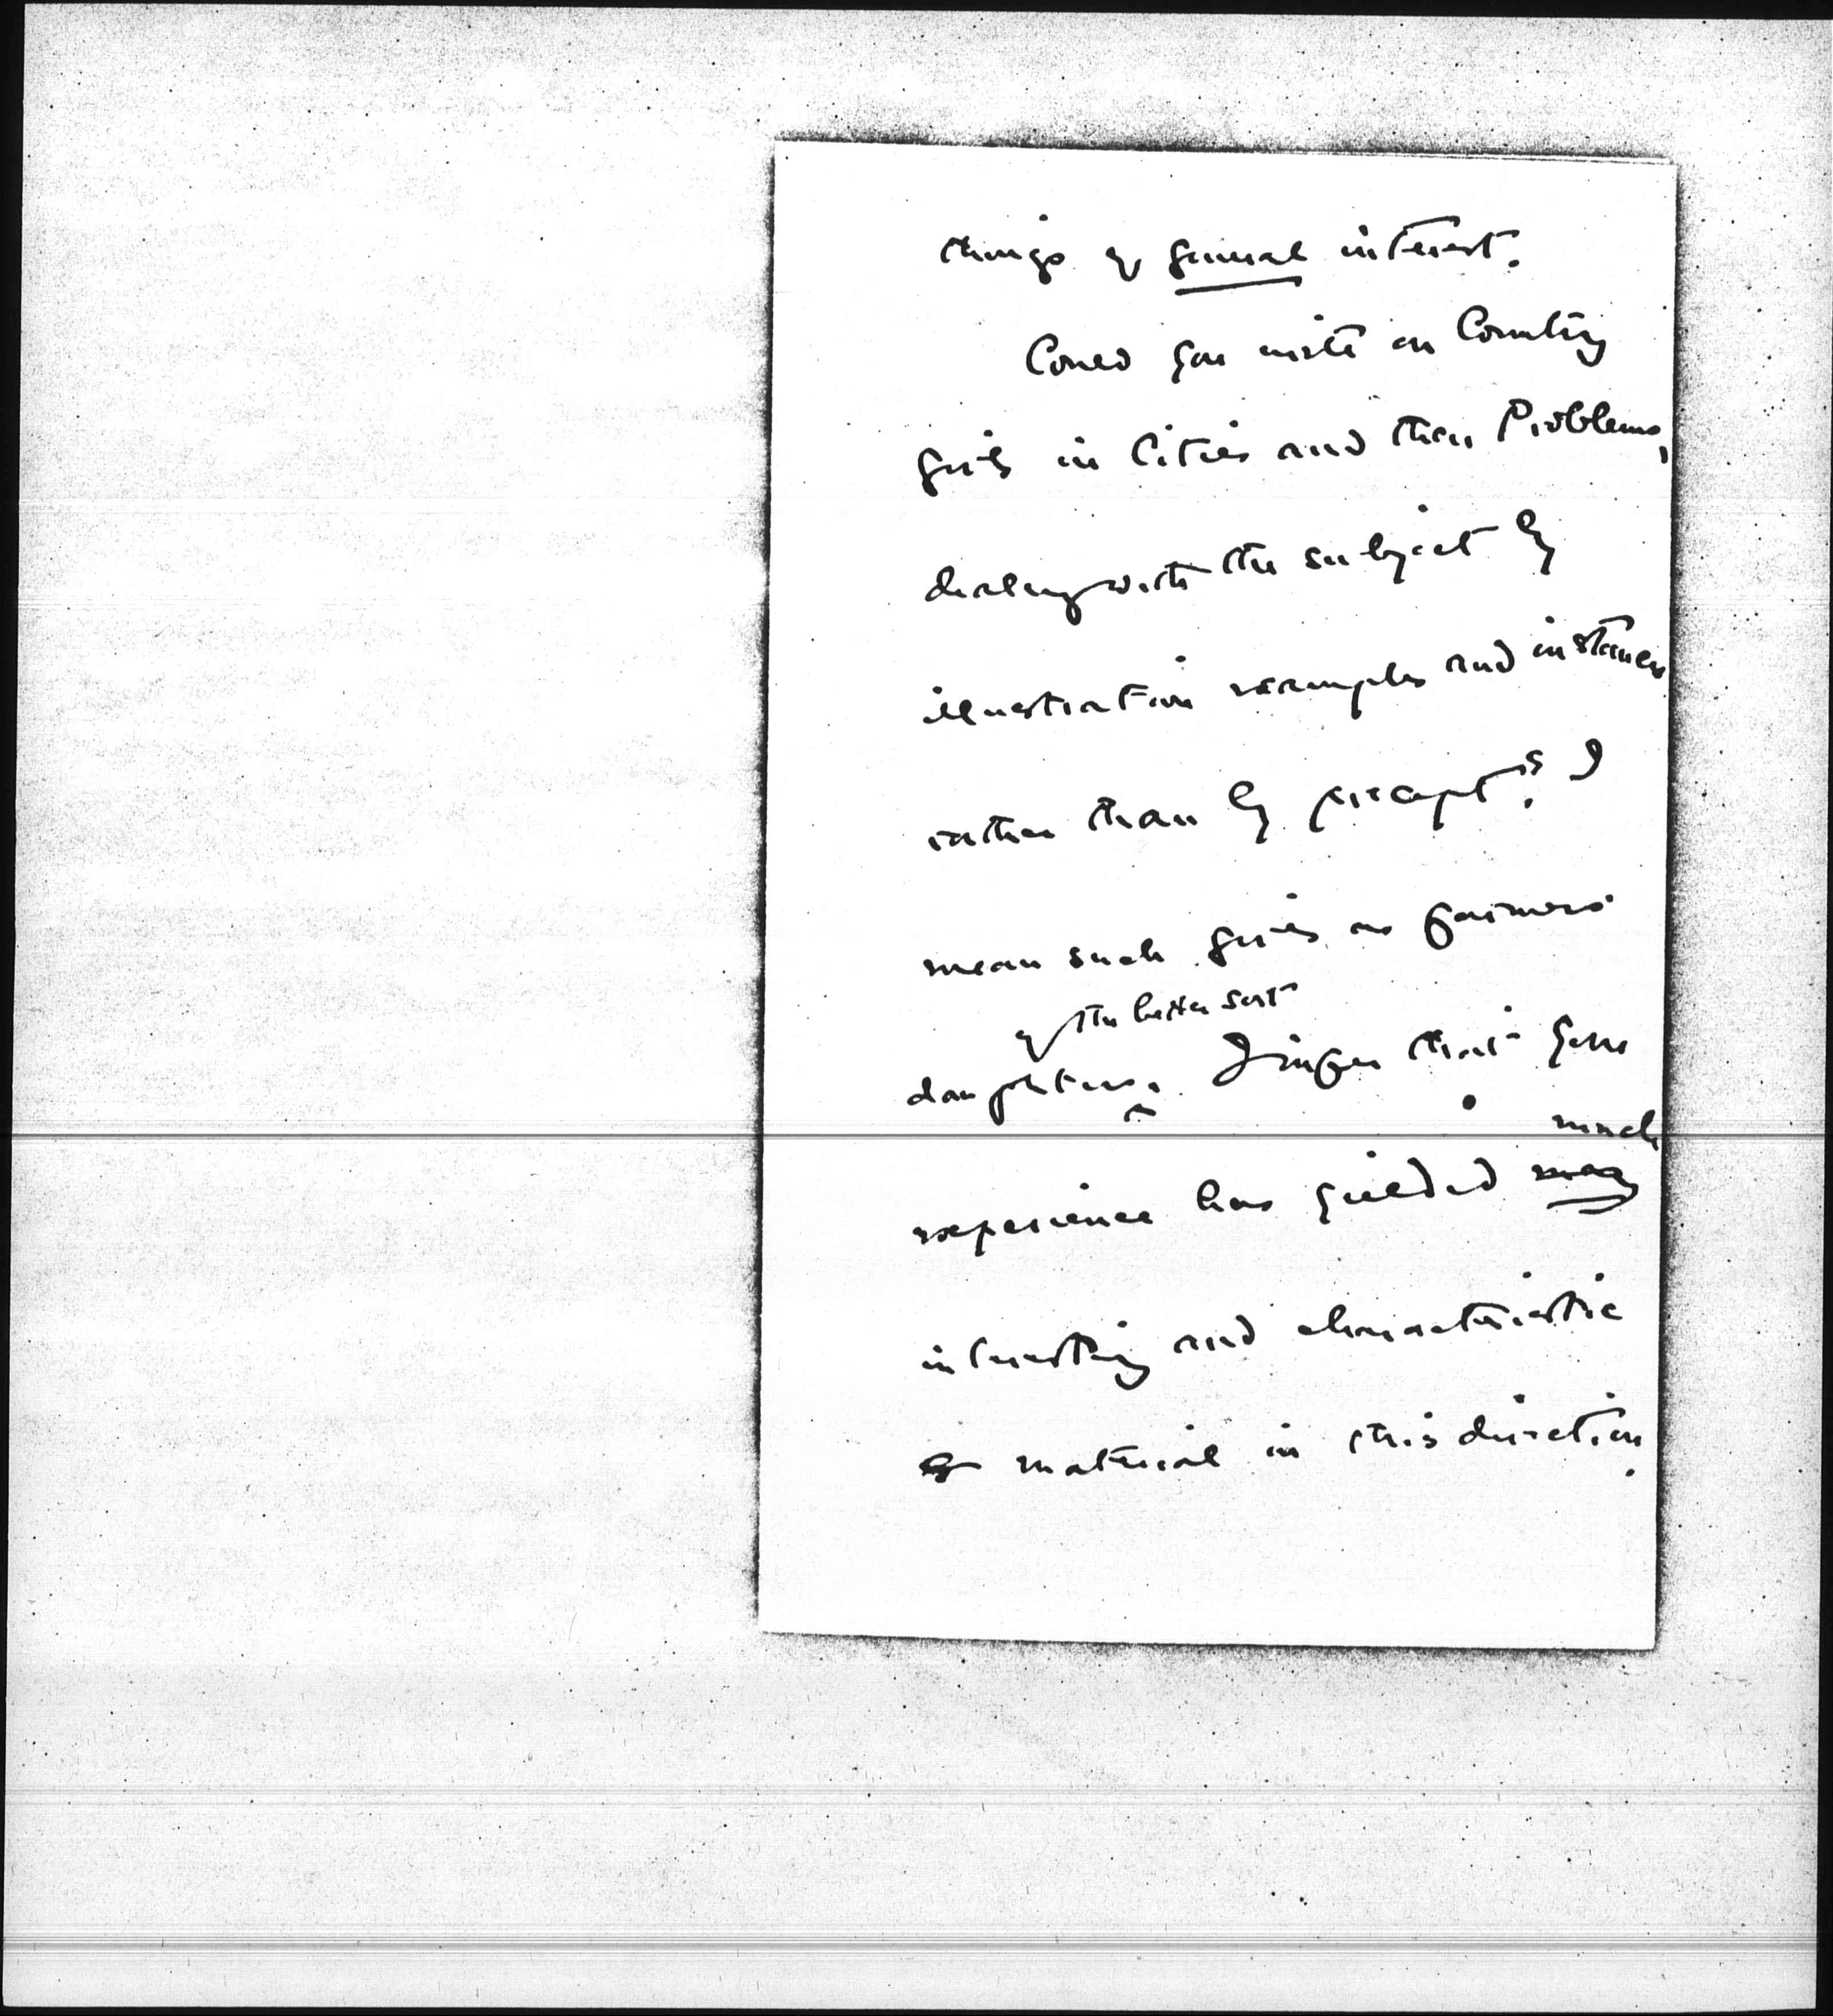 things of general interest.
Could you write on Country
girls in Cities and their Problems,
dealing with the subject by
illustration examples and instances
rather than by precept? I
mean such girls as farmers
of the better sort
daughters. I infer that your
much
experience has yielded many
interesting and characteristic
material in this direction.